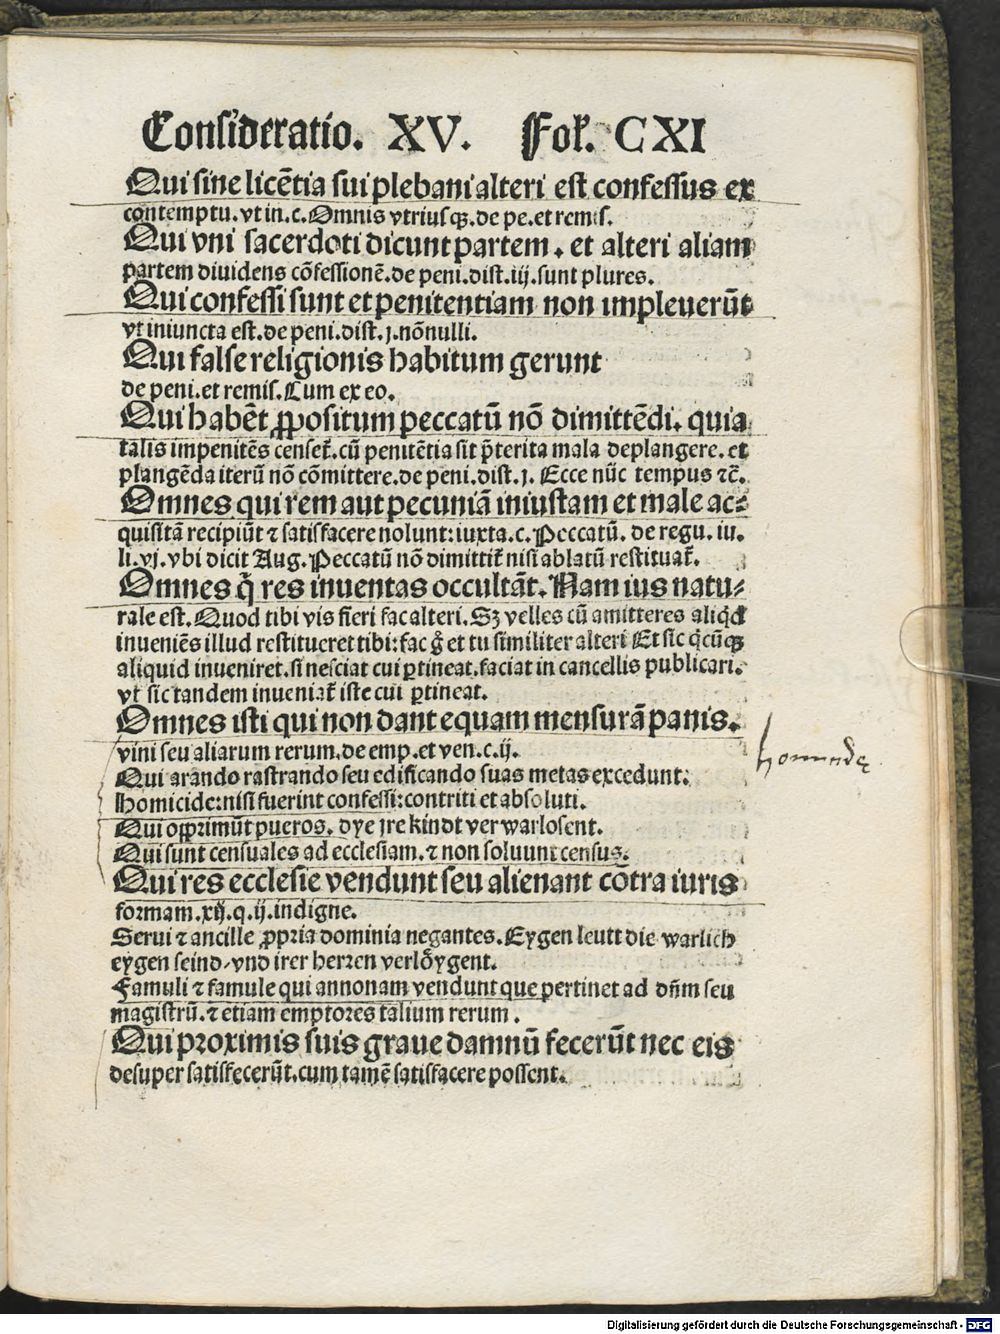 Consideratio. XV. Fol. CXI
Qui sine licētia sui plebani alteri est confessus ex
contemptu. vt in. c. Omnis vtriusqȝ. de pe. et remis.
Qui vni sacerdoti dicunt partem. et alteri aliam
partem diuidens cōfessionē. de peni. dist. iij. sunt plures.
Qui confessi sunt et penitentiam non impleuerūt
vt iniuncta est. de peni. dist. j. nōnulli.
Qui false religionis habitum gerunt
de peni. et remis. Cum ex eo.
Qui habēt ꝓpositum peccatū nō dimittēdi. quia
talis impenitēs censet̄. cū penitētia sit p̄terita mala deplangere. et
plangēda iterū nō cōmittere. de peni. dist. j. Ecce nūc tempus ⁊c̄.
Omnes qui rem aut pecuniā iniustam et male ac⸗
quisitā recipiūt ⁊ satisfacere nolunt: iuxta. c. Peccatū. de regu. iu.
li. vj. vbi dicit Aug. Peccatū nō dimittit̄ nisi ablatū restituat̄.
Omnes q̄ res inuentas occultāt. Nam ius natu⸗
rale est. Quod tibi vis fieri fac alteri. Sȝ velles cū amitteres aliqd
inueniēs illud restitueret tibi: fac g̊ et tu similiter alteri Et sic qcūqȝ
aliquid inueniret. si nesciat cui ꝑtineat. faciat in cancellis publicari.
vt sic tandem inueniat̄ iste cui ꝑtineat.
Omnes isti qui non dant equam mensurā panis.
vini seu aliarum rerum. de emp. et ven. c. ij.
Qui arando rastrando seu edificando suas metas excedunt:
Homicide: nisi fuerint confessi: contriti et absoluti.
Qui opprimūt pueros. dye jre kindt verwarlosent.
Qui sunt censuales ad ecclesiam. ⁊ non soluunt census.
Qui res ecclesie vendunt seu alienant cōtra iuris
formam. xij. q. ij. indigne.
Serui ⁊ ancille ꝓpria dominia negantes. Eygen leutt die warlich
eygen seind/ vnd irer herren verlöygent.
Famuli ⁊ famule qui annonam vendunt que pertinet ad dn̄m seu
magistrū. ⁊ etiam emptores talium rerum.
Qui proximis suis graue damnū fecerūt nec eis
desuper satisfecerūt. cum tamē satisfacere possent.
Digitalisierung gefördert durch die Deutsche Forschungsgemeinschaft - DFG